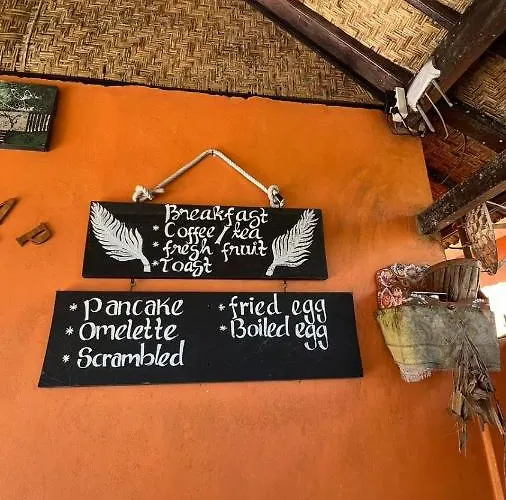 Breakfast
* Coffee/tea
* fresh fruit
* Toast
* Pancake
* Omelette
* Scrambled
* fried egg
* Boiled egg